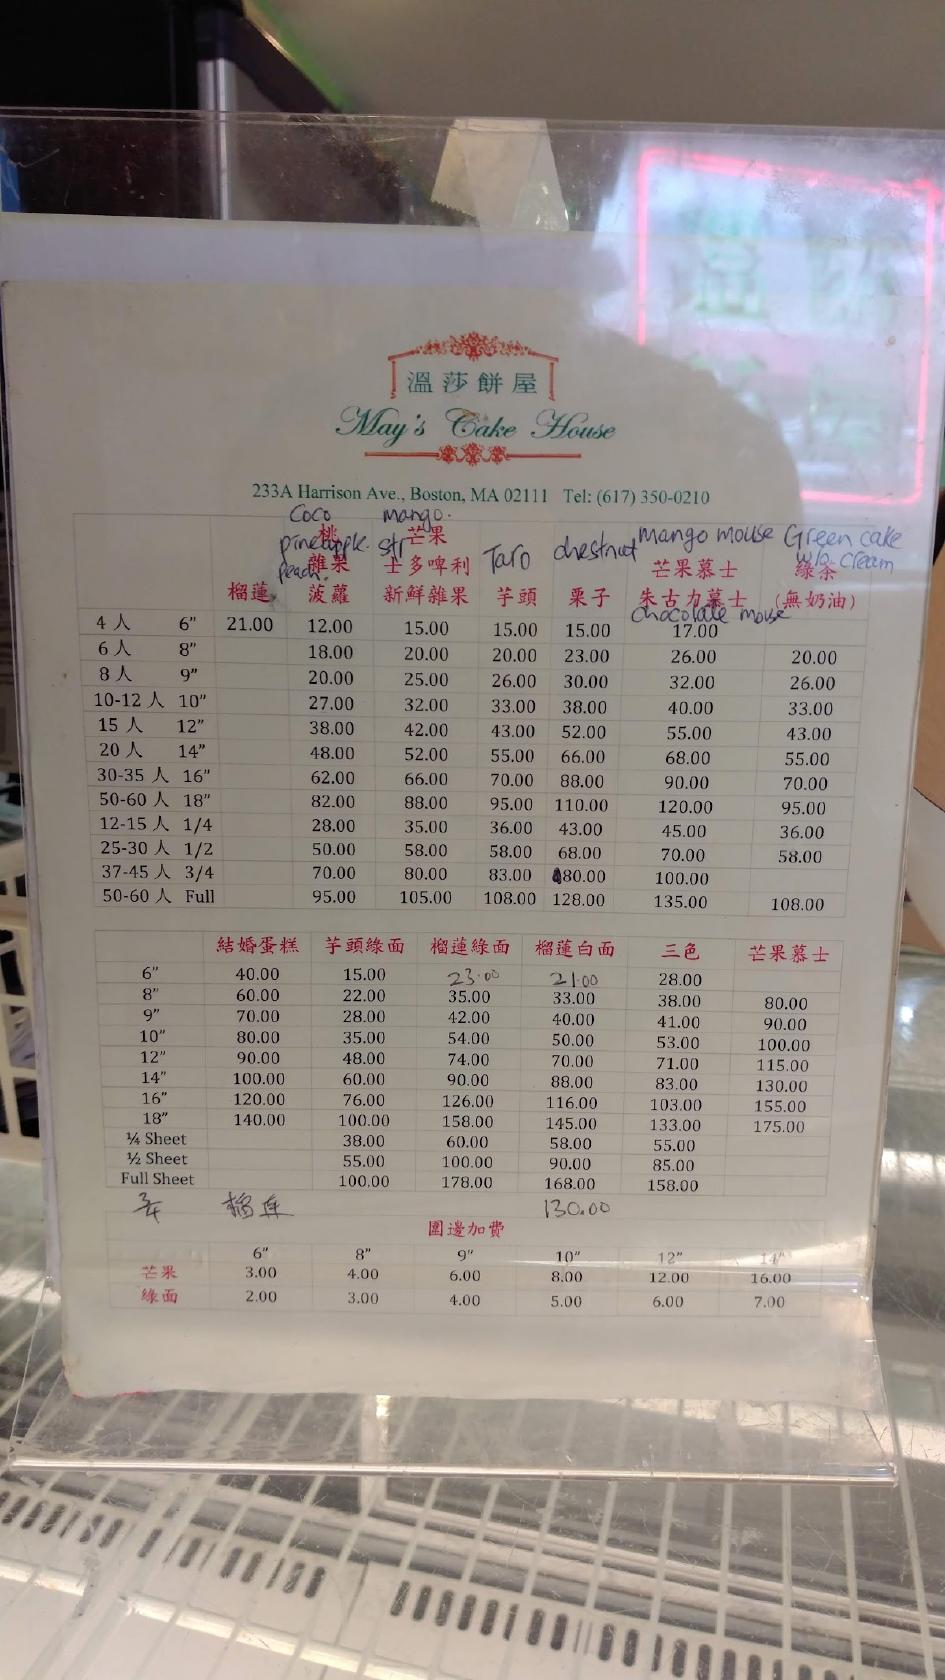 溫莎餅屋
May's Cake House
233A Harrison Ave., Boston, MA 02111 Tel: (617) 350-0210
Coco mango.
桃 芒果
pineapple. str Taro chestnut mango mouse Green cake
雜果 士多啤梨 芒果慕士 綠茶
peach. w/o cream
榴蓮 菠蘿 新鮮雜果 芋頭 栗子 朱古力慕士 (無奶油)
chocolate mouse
4 人 6" 21.00 12.00 15.00 15.00 15.00 17.00
6 人 8" 18.00 20.00 20.00 23.00 26.00 20.00
8 人 9" 20.00 25.00 26.00 30.00 32.00 26.00
10-12 人 10" 27.00 32.00 33.00 38.00 40.00 33.00
15 人 12" 38.00 42.00 43.00 52.00 55.00 43.00
20 人 14" 48.00 52.00 55.00 66.00 68.00 55.00
30-35 人 16" 62.00 66.00 70.00 88.00 90.00 70.00
50-60 人 18" 82.00 88.00 95.00 110.00 120.00 95.00
12-15 人 1/4 28.00 35.00 36.00 43.00 45.00 36.00
25-30 人 1/2 50.00 58.00 58.00 68.00 70.00 58.00
37-45 人 3/4 70.00 80.00 83.00 80.00 100.00
50-60 人 Full 95.00 105.00 108.00 128.00 135.00 108.00
結婚蛋糕 芋頭綠面 榴蓮綠面 榴蓮白面 三色 芒果慕士
6" 40.00 15.00 23.00 21.00 28.00
8" 60.00 22.00 35.00 33.00 38.00 80.00
9" 70.00 28.00 42.00 40.00 41.00 90.00
10" 80.00 35.00 54.00 50.00 53.00 100.00
12" 90.00 48.00 74.00 70.00 71.00 115.00
14" 100.00 60.00 90.00 88.00 83.00 130.00
16" 120.00 76.00 126.00 116.00 103.00 155.00
18" 140.00 100.00 158.00 145.00 133.00 175.00
¼ Sheet 38.00 60.00 58.00 55.00
½ Sheet 55.00 100.00 90.00 85.00
Full Sheet 100.00 178.00 168.00 158.00
3/4 榴连 130.00
圍邊加費
6" 8" 9" 10" 12" 14"
芒果 3.00 4.00 6.00 8.00 12.00 16.00
綠面 2.00 3.00 4.00 5.00 6.00 7.00